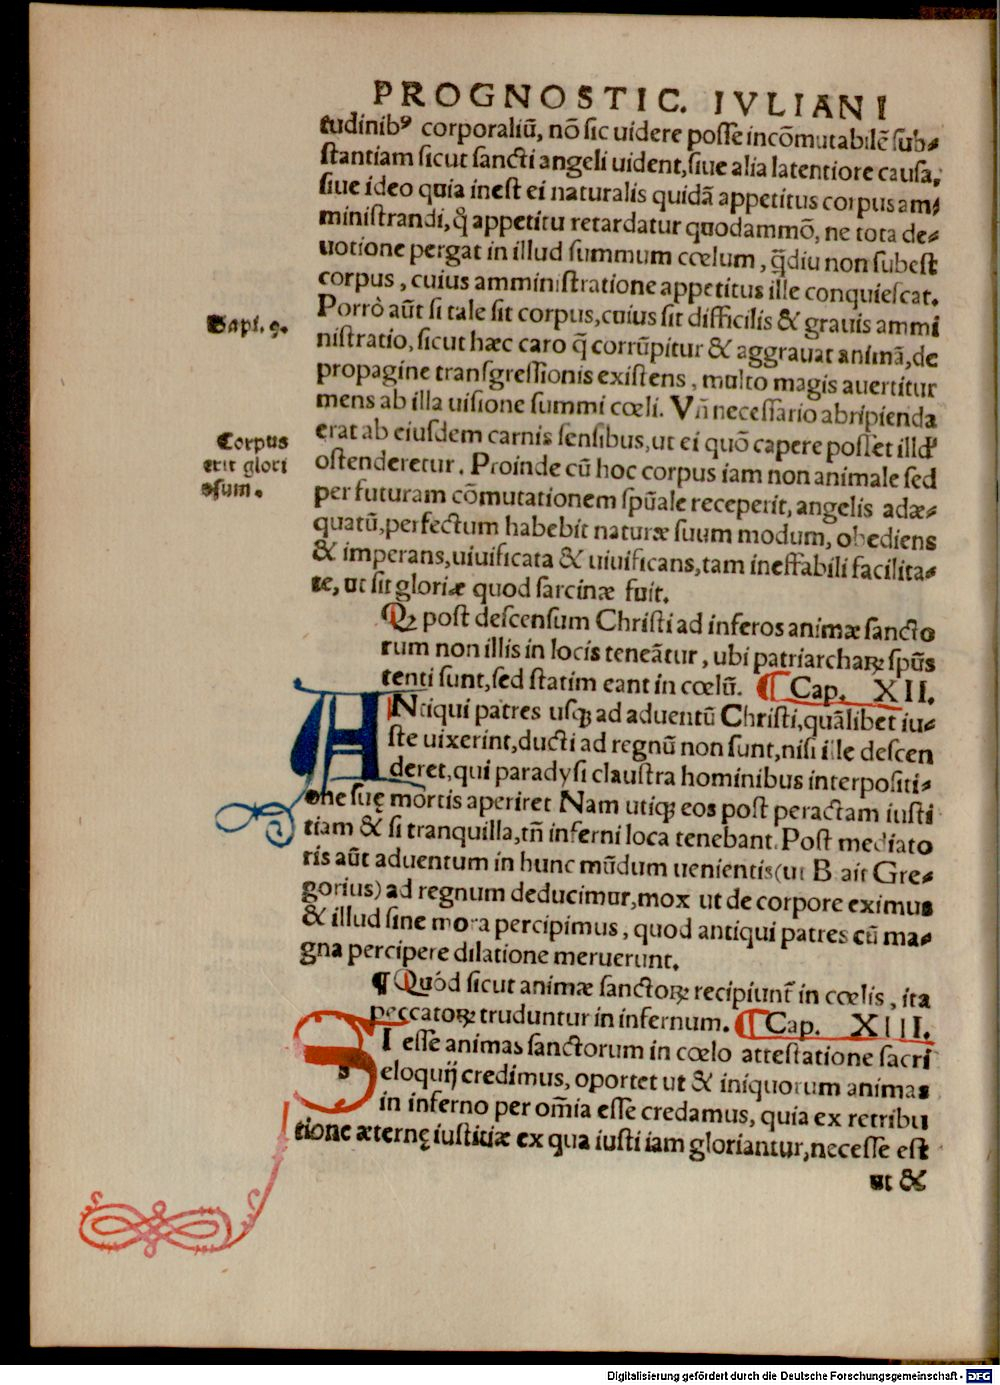 PROGNOSTIC. IVLIANI
tudinibꝰ corporaliũ, nõ sic uidere posse incõmutabilẽ sub⸗
stantiam sicut sancti angeli uident, siue alia latentiore causa,
siue ideo quia inest ei naturalis quidã appetitus corpus am⸗
ministrandi, q̃ appetitu retardatur quodammõ, ne tota de⸗
uotione pergat in illud summum cœlum, q̃diu non subest
corpus, cuius amministratione appetitus ille conquiescat.
Porrò aũt si tale sit corpus, cuius sit difficilis & grauis ammi
Sapi. 9.
nistratio, sicut hæc caro q̃ corrũpitur & aggrauat animã, de
propagine transgressionis existens, multo magis auertitur
mens ab illa uisione summi cœli. Vñ necessario abripienda
erat ab eiusdem carnis sensibus, ut ei quõ capere posset illđ
Corpus
erit glori
osum.
ostenderetur. Proinde cũ hoc corpus iam non animale sed
per futuram cõmutationem spũale receperit, angelis adæ⸗
quatũ, perfectum habebit naturæ suum modum, obediens
& imperans, uiuificata & uiuificans, tam ineffabili facilita⸗
te, ut sit gloriæ quod sarcinæ fuit.
Qꝫ post descensum Christi ad inferos animæ sancto
rum non illis in locis teneãtur, ubi patriarchaꝝ spũs
tenti sunt, sed statim eant in cœlũ. ¶ Cap. XII.
ANtiqui patres usqꝫ ad aduentũ Christi, quãlibet iu⸗
ste uixerint, ducti ad regnũ non sunt, nisi ille descen
deret, qui paradysi claustra hominibus interpositi⸗
one suę mortis aperiret Nam utiqꝫ eos post peractam iusti
tiam & si tranquilla, tñ inferni loca tenebant. Post mediato
ris aũt aduentum in hunc mũdum uenientis (ut B. ait Gre⸗
gorius) ad regnum deducimur, mox ut de corpore eximus
& illud sine mora percipimus, quod antiqui patres cũ ma⸗
gna percipere dilatione meruerunt.
¶ Quód sicut animæ sanctoꝝ recipiunt̃ in cœlis, ita
peccatoꝝ truduntur in infernum. ¶ Cap. XIII.
SI esse animas sanctorum in cœlo attestatione sacri
eloquij credimus, oportet ut & iniquorum animas
in inferno per om̃ia esse credamus, quia ex retribu
tione æternę iustitiæ ex qua iusti iam gloriantur, necesse est
ut &
Digitalisierung gefördert durch die Deutsche Forschungsgemeinschaft - DFG